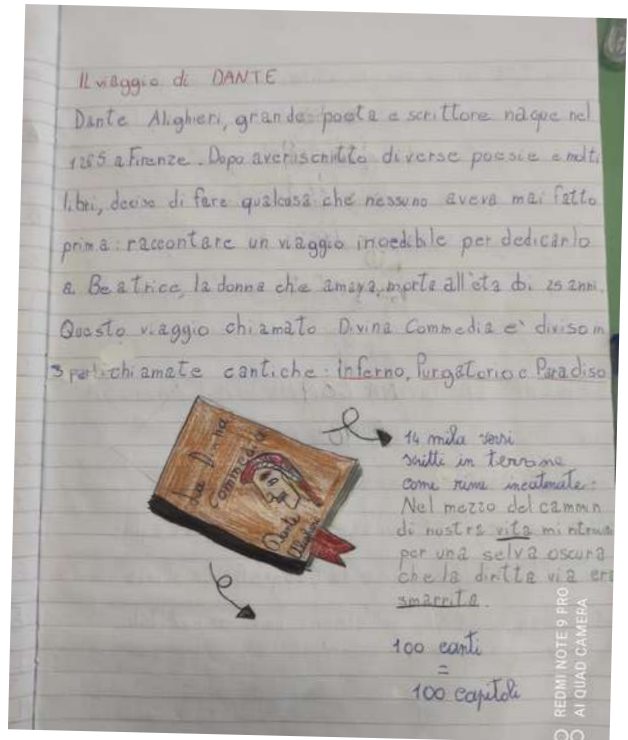 Il viaggio di DANTE
Dante Alighieri, grande poeta e scrittore naque nel
1265 a Firenze. Dopo aver iscritto diverse poesie e molti
libri, decise di fare qualcosa che nessuno aveva mai fatto
prima: raccontare un viaggio incedibile per dedicarlo
a Beatrice, la donna che amava, morta all'età di 25 anni.
Questo viaggio chiamato Divina Commedia e' diviso in
3 parti chiamate cantiche: Inferno, Purgatorio e Paradiso
La Divina
Commedia
Dante
Alighieri
14 mila versi
scritti in terzine
come rime incatenate:
Nel mezzo del cammin
di nostra vita mi ritrovai
per una selva oscura
che la diritta via era
smarrita.
100 canti
=
100 capitoli
REDMI NOTE 9 PRO
AI QUAD CAMERA